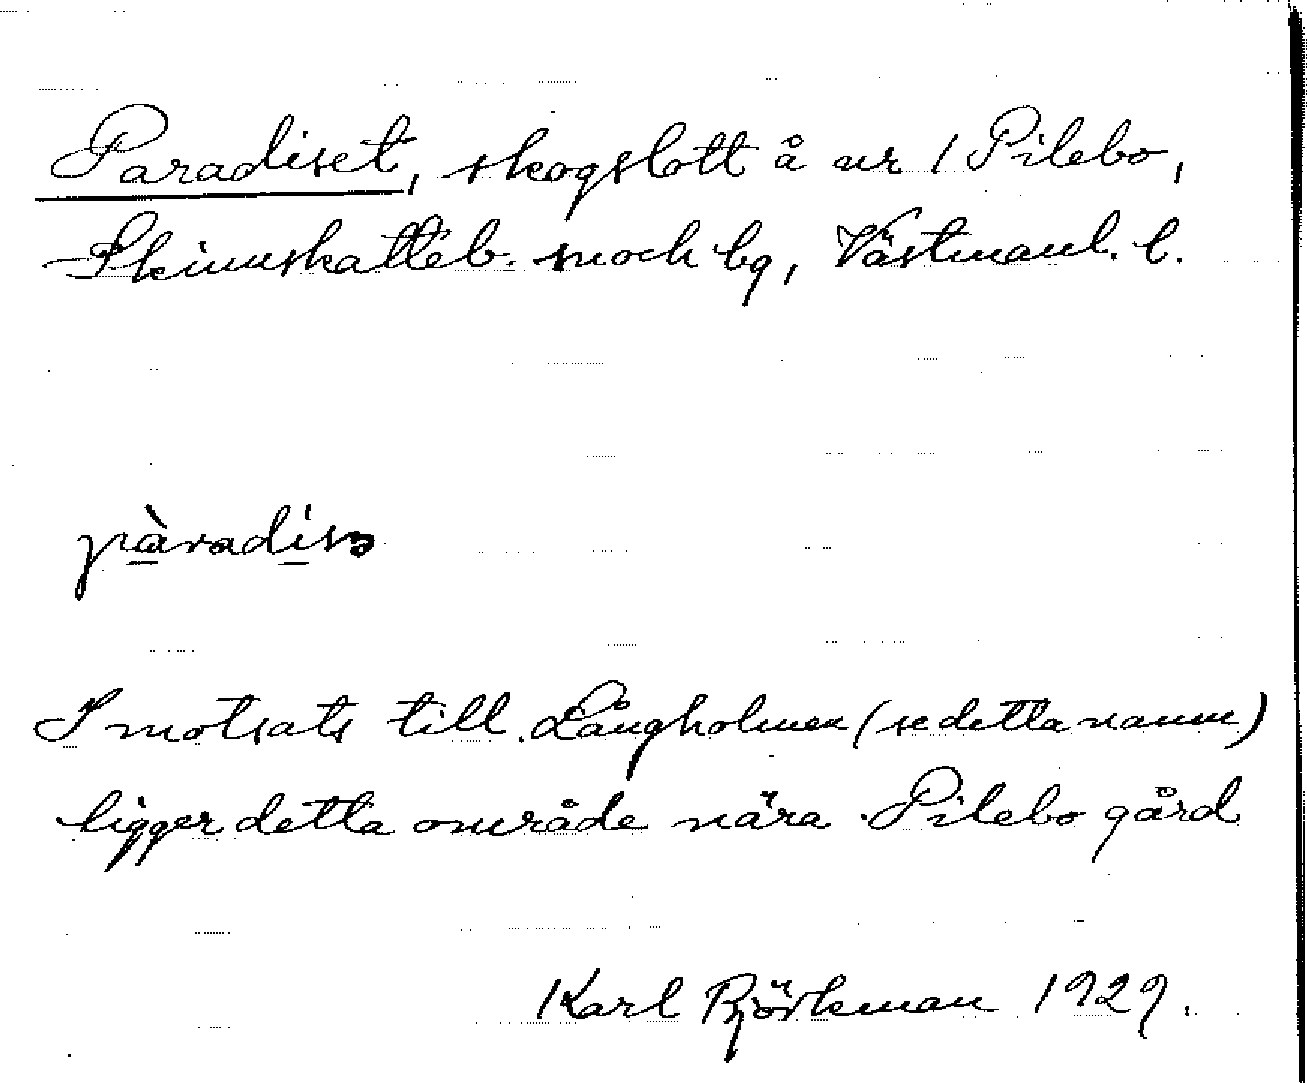 Paradiset, skogslott å nr 1 Pilebo,
Skinnskatteb. sn och bg, Västmanl. l.
pàradisə
I motsats till Långholmen (se detta namn)
ligger detta område nära Pilebo gård
Karl Björkman 1929.